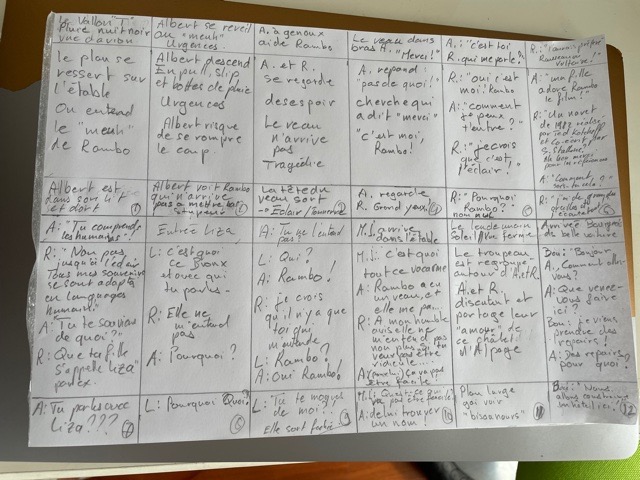 Le Vallon
Pluie nuit noir
vue d'avion
le plan se
ressert sur
l'étable
On entend
le "meuh"
de Rambo
Albert est
dans son lit
et dort
Albert se reveil
au "meuh"
Urgences
Albert descend
En pull, slip
et bottes de pluie
Urgences
Albert risque
de se rompre
le coup.
Albert voit Rambo
qui n'arrive
pas a mettre bas
A. à genoux
aide Rambo
A. et R.
se regarde
desespoir
Le veau
n'arrive
pas
Tragédie
La tête du
veau sort
Eclair / Tonnerre
Le veau dans
bras A. "Merci!"
A. repond
"pas de quoi!"
cherche qui
a dit "merci"
"c'est moi,
Rambo!
A. regarde
R. Grand yeux
A.: "c'est toi
R. qui me parle?"
R: "oui c'est
moi! Rambo
A: "comment
je peux
t'entendre?"
R: "je crois
que c'est
l'éclair!"
R: "Pourquoi
Rambo?
A: "ma fille
adore Rambo
le film!"
A: "Tu comprends
les humains"!
R: "Non pas
jusqu'à l'éclair
Tous mes souvenirs
se sont adapté
en langages
humain."
A: Tu te souviens
de quoi?"
R: Que ta fille
s'appelle Liza"
par ex.
A: Tu parles avec
Liza???
7
Entrée Liza
L: c'est quoi
ce Bronx
et avec qui
tu parles-
R: Elle ne
m'entend
pas
A: Pourquoi?
L: Pourquoi Quoi?
8
A: Tu ne l'entend
pas
L: Qui?
A: Rambo!
R: je crois
qu'il n'y a que
toi qui
m'entende
L: Rambo?
A: Oui Rambo!
L: "Tu te moque
de moi..
Elle sont
9
M.L. arrive
dans l'étable
M.L: C'est quoi
tout ce vacarme
A: Rambo a eu
un veau, et
elle me pa...
R: A mon humble
avis elle ne
m'entend pas
non plus, si tu
veux pas être
ridicule..
ça va pas
être facile
A: de lui trouver
un nom!
10
Le lendemain
soleil ferme
Le troupeau
est regroupé
autour d'A. et R.
A. et R.
discutent et
partage leur
"amour" de
ce chalet
d'Alpage
Plan large
qui voir
"bisounours"
11
Arrivée Bourgeois
de belle voiture
Bou: Bonjour
A: Comment allez
vous?
A: Que venez
vous faire
ici?
Bou: je viens
prendre des
repairs!
A: Des repairs
pour quoi?
Bou: "Nous
allons construire
un hotel ici!"
12